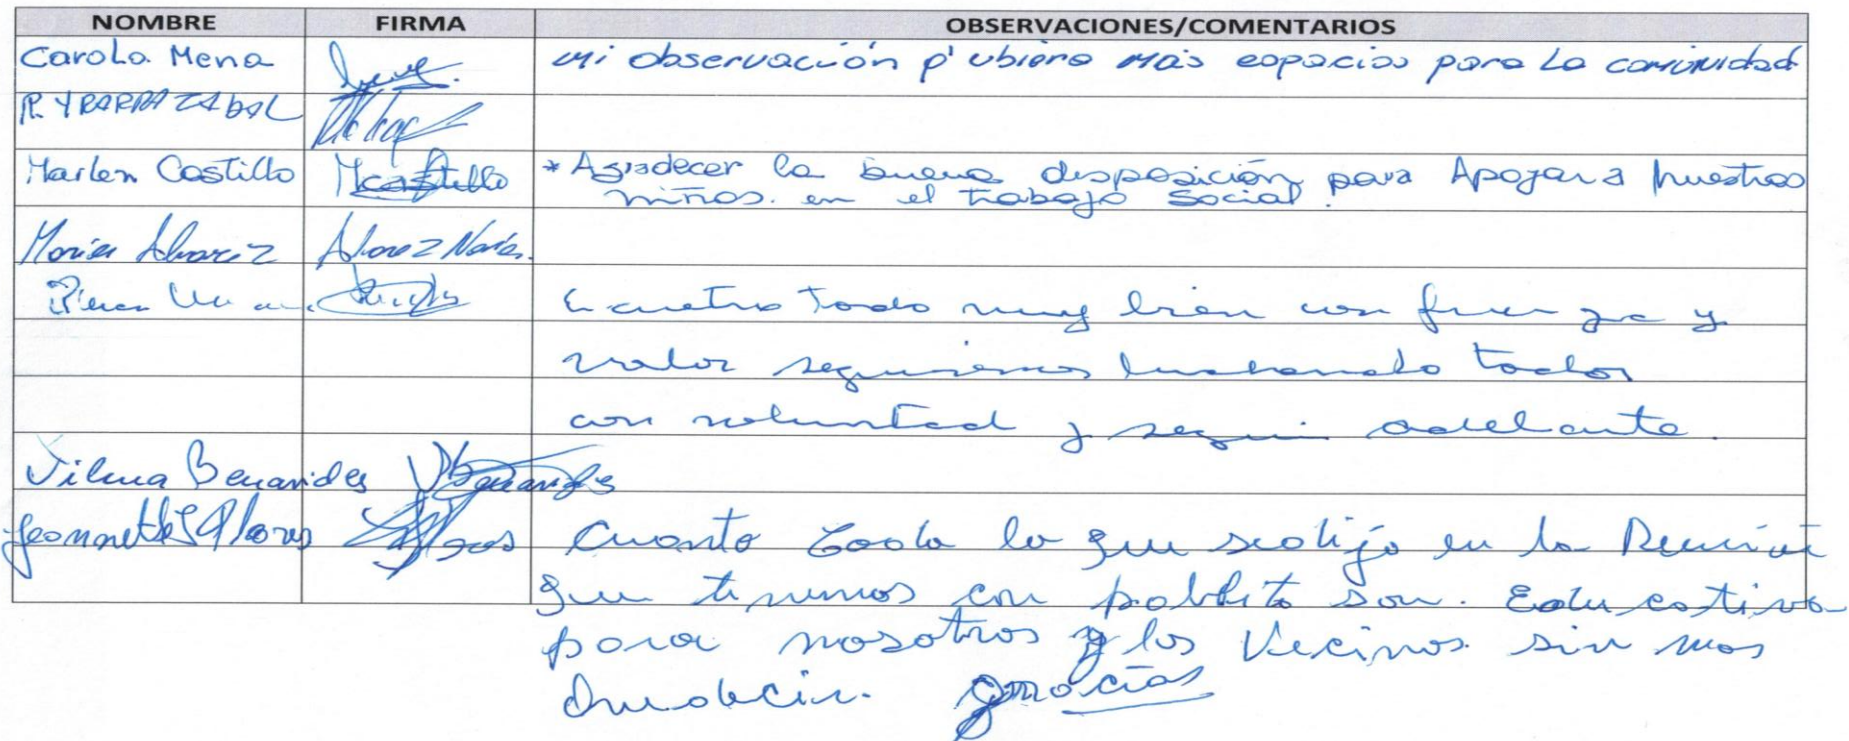 NOMBRE FIRMA OBSERVACIONES/COMENTARIOS
Carola Mena mi observación p' ubiera más espacios para la comunidad
R. YBARRAZABAL
Marlen Castillo MCastillo * Agradecer la buena disposición para Apoyar a nuestros
niños. en el trabajo Social.
Alvarez
todo muy bien con fuerza y
valor seguiremos luchando todos
con voluntad y seguir adelante.
Vilma Benavides VBenavides
Jeannette Flores Cuanto toda lo que se dijo en la Reunión
que tenemos con pablito son. Educativa
para nosotros y los Vecinos. sin mas
que decir. gracias